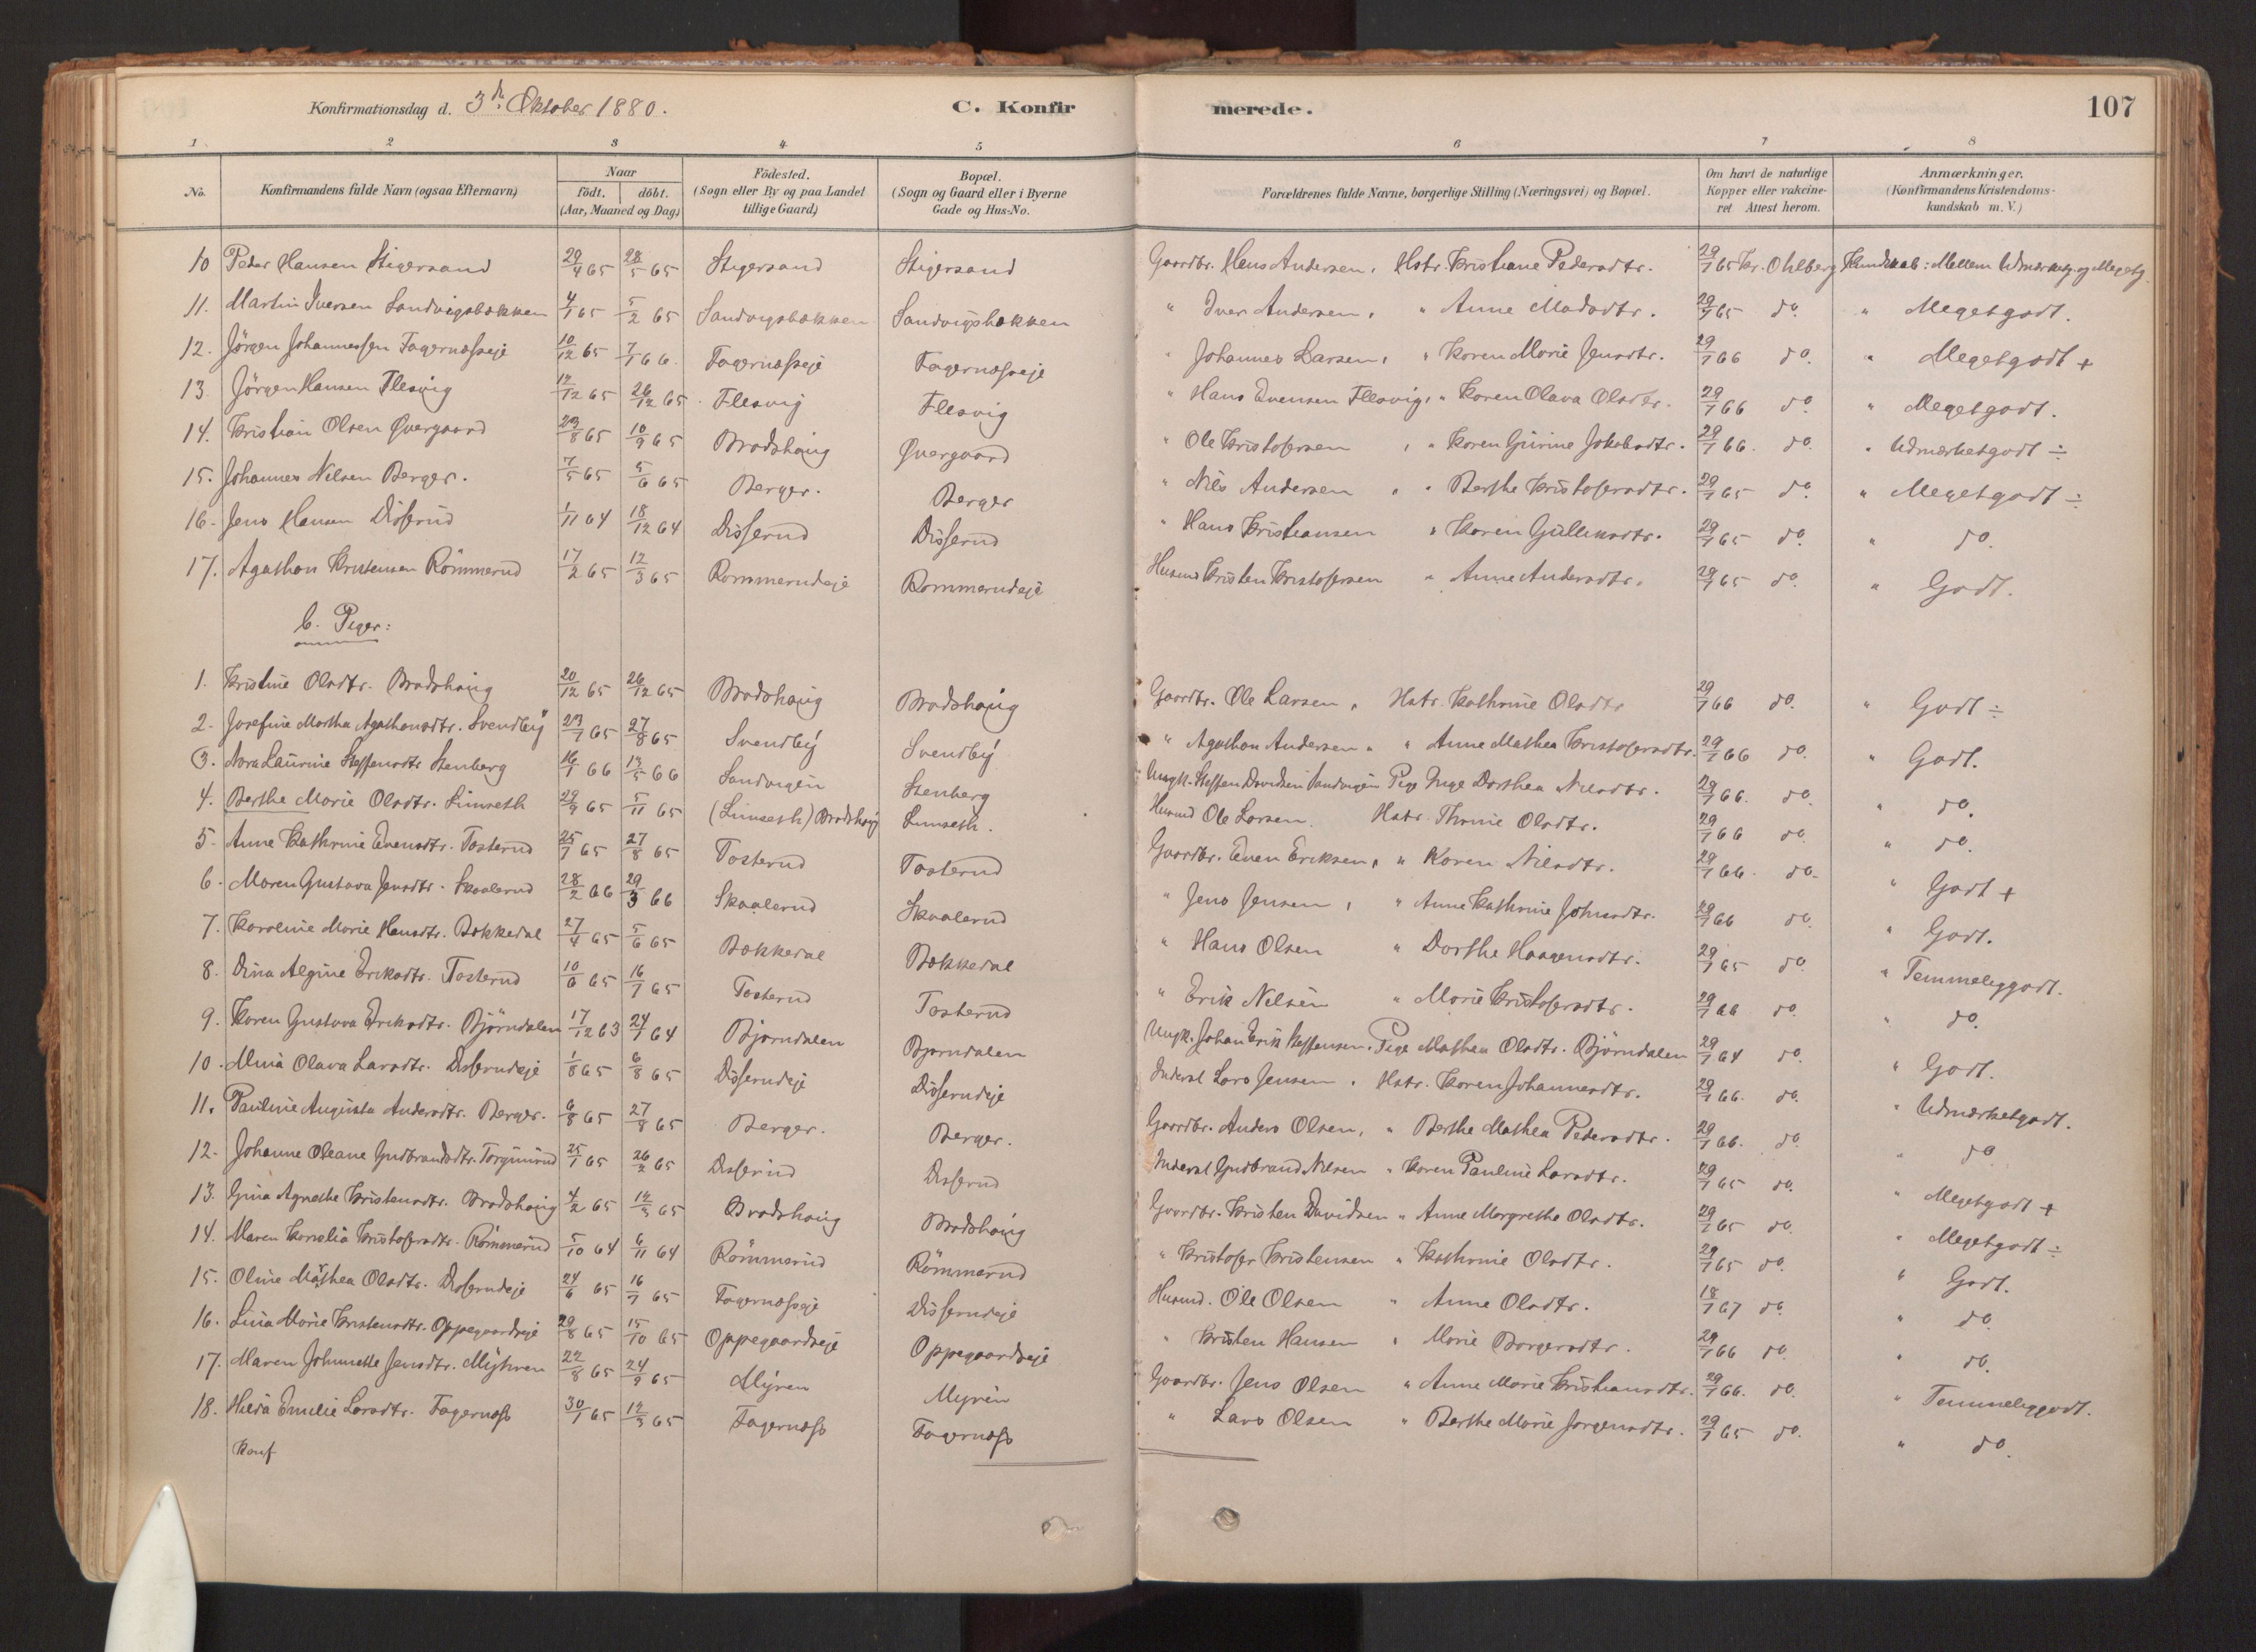 Konfirmationsdag d. 3die Oktober 1880. C. Konfirmerede. 107
1 2 3 4 5 6 7 8
No. Konfirmandens fulde Navn (ogsaa Efternavn) Naar födt. döbt. (Aar, Maaned og Dag) Födested. (Sogn eller By og paa Landet tillige Gaard) Bopæl. (Sogn og Gaard eller i Byerne Gade og Hus-No. Forældrenes fulde Navne, borgerlige Stilling (Næringsvei) og Bopæl. Om havt de naturlige Kopper eller vakcineret. Attest herom. Anmærkninger. (Konfirmandens Kristendomskundskab m. V.)
10 Peder Hansen Stigersand 29/4 65 28/5 65 Stigersand Stigersand Gaardbr. Hans Andersen, Hstr. Kristiane Pedersdtr. 29/7 65 Kr. Ohlberg Kundskab: Mellem Udmærketg. og Megetg.
11. Martin Iversen Sandvigsbakken 4/1 65 5/2 65 Sandvigsbakken Sandvigsbakken " Iver Andersen, " Anne Madsdtr. 29/9 65 do. " Megetgodt.
12. Jörgen Johannessen Fagernæsseje 10/12 65 7/1 66. Fagernæsseje Fagernæsseje " Johannes Larsen, " Karen Marie Jensdtr. 29/7 66 do. " Megetgodt +
13. Jörgen Hansen Flesvig 12/12 65 26/12 65. Flesvig Flesvig " Hans Evensen Flesvig, " Karen Olava Olsdtr. 29/7 66 do. " Megetgodt.
14. Kristian Olsen Øvergaard 29/8 65 10/9 65 Brodshaug Øvergaard " Ole Kristofersen, " Karen Gurine Jakobsdtr. 29/7 66. do. " Udmærketgodt ÷
15. Johannes Nilsen Berger. 7/5 65 5/6 65 Berger. Berger " Nils Andersen " " Berthe Kristofersdtr. 29/7 65 do. " Megetgodt ÷
16. Jens Hansen Disserud 1/11 64 18/12 64 Disserud Disserud " Hans Kristiansen " Karen Gulliksdtr. 29/7 65 do. " do.
17. Agathon Kristensen Römmerud 17/2 65 12/3 65 Rommerudeje Rommerudeje Husmd Kristen Kristofersen " Anne Andersdtr. 29/7 65 do. " Godt.
b. Piger:
1. Kristine Olsdtr. Brodshaug 20/12 65 26/12 65 Brodshaug Brodshaug Gaardbr. Ole Larsen, Hstr. Kathrine Olsdtr 29/7 66 do. " Godt ÷
2. Josefine Martha Agathonsdtr. Svendby 23/7 65 27/8 65 Svendby Svendby " Agathon Andersen " " Anne Mathea Kristofersdtr. 29/7 66 do. " Godt.
3. Nora Laurine Steffensdtr Stenberg 16/1 66 13/5 66 Sandvigen Stenberg Ungk. Steffen Davidsen Sandvigen Pige Inge Dorthea Nilsdtr. 29/7 66. do. " do.
4. Berthe Marie Olsdtr. Limseth 29/9 65 5/11 65 (Limseth) Brodshaug Limseth. Husmd Ole Larsen. Hstr. Thrine Olsdtr. 29/7 66 do. " do.
5. Anne Kathrine Evensdtr. Tosterud 25/7 65 27/8 65 Tosterud Tosterud Gaardbr. Even Eriksen, " Karen Nilsdtr. 29/7 66. do. " Godt +
6. Maren Gustava Jensdtr. Skaalerud 28/2 66 29/3 66 Skaalerud Skaalerud " Jens Jensen, " Anne Kathrine Johnsdtr. 29/7 66 do. " Godt.
7. Karoline Marie Hansdtr. Bækkedal 27/4 65 5/6 65 Bækkedal Bækkedal " Hans Olsen " Dorthe Haagensdtr. 29/7 65 do. " Temmeliggodt.
8. Dina Algine Eriksdtr. Tosterud 10/6 65 16/7 65 Tosterud Tosterud " Erik Nilsen " Marie Kristofersdtr. 29/7 66 do. " do.
9. Karen Gustava Eriksdtr. Björndalen 17/12 63 24/1 64 Bjorndalen Bjorndalen Ungk. Johan Erik Steffensen. Pige Mathea Olsdtr. Björndalen 29/7 64 do. " Godt.
10. Mina Olava Larsdtr. Disserudeje 1/8 65 6/8 65 Disserudeje Disserudeje Inderst Lars Jensen, Hstr. Karen Johannesdtr. 29/7 66. do. " Udmærketgodt.
11. Pauline Augusta Andersdtr. Berger. 6/8 65 27/8 65 Berger. Berger. Gaardbr. Anders Olsen, " Berthe Mathea Pedersdtr. 29/7 66. do. " do
12. Johanne Oleane Gudbrandsdtr. Torgunrud 25/1 65 26/2 65 Disserud Disserud Inderst Gudbrand Nilsen " Karen Pauline Larsdtr. 29/7 65 do. " Megetgodt +
13. Gina Agnethe Kristensdtr. Brodshaug 4/2 65 12/3 65 Brodshaug Brodshaug Gaardbr. Kristen Davidsen " Anne Margrethe Olsdtr. 29/7 65 do. " Megetgodt ÷
14. Maren Kornelia Kristofersdtr. Römmerud 5/10 64 6/11 64 Römmerud Römmerud " Kristofer Kristensen " Kathrine Olsdtr. 29/7 65 do. " Godt.
15. Oline Mathea Olsdtr. Disserudeje 24/6 65 16/7 65 Fagernæsseje Disserudeje Husmd. Ole Olsen " Anne Olsdtr. 18/7 67 do. " do.
16. Lina Marie Kristensdtr. Oppegaardseje 29/8 65 15/10 65 Oppegaardseje Oppegaardseje " Kristen Hansen " Marie Borgersdtr. 29/7 66 do. " do.
17. Maren Johannette Jensdtr. Myhren 22/8 65 24/9 65 Myren Myren Gaardbr. Jens Olsen " Anne Marie Kristiansdtr. 29/7 66. do. " Temmeliggodt.
18. Hilda Emilie Larsdtr. Fagernæss 30/1 65 12/3 65 Fagernæss Fagernæss " Lars Olsen " Berthe Marie Jorgensdtr. 29/7 65 do. " do.
Konf